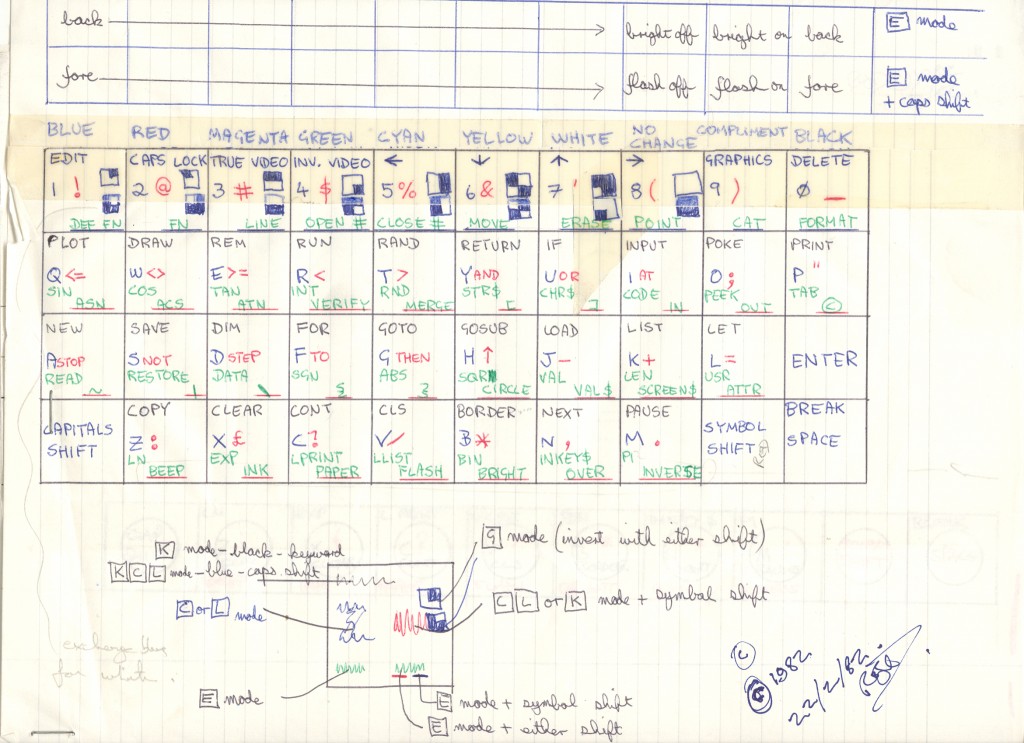 back bright off bright on back E mode
fore flash off flash on fore E mode
+ caps shift
BLUE RED MAGENTA GREEN CYAN YELLOW WHITE NO CHANGE COMPLIMENT BLACK
EDIT CAPS LOCK TRUE VIDEO INV. VIDEO ← ↓ ↑ → GRAPHICS DELETE
1 ! 2 @ 3 # 4 $ 5 % 6 & 7 ' 8 ( 9 ) Ø _
DEF FN FN LINE OPEN # CLOSE # MOVE ERASE POINT CAT FORMAT
PLOT DRAW REM RUN RAND RETURN IF INPUT POKE PRINT
Q <= W <> E >= R < T > Y AND U OR I AT O ; P "
SIN COS TAN INT RND STR$ CHR$ CODE PEEK TAB
ASN ACS ATN VERIFY MERGE [ ] IN OUT ©
NEW SAVE DIM FOR GOTO GOSUB LOAD LIST LET
A STOP S NOT D STEP F TO G THEN H ↑ J - K + L = ENTER
READ RESTORE DATA SGN ABS SQR VAL LEN USR
~ | \ { } CIRCLE VAL $ SCREEN$ ATTR
COPY CLEAR CONT CLS BORDER NEXT PAUSE BREAK
CAPITALS SHIFT Z : X £ C ? V / B * N , M . SYMBOL SHIFT Red SPACE
LN EXP LPRINT LLIST BIN INKEY$ PI
BEEP INK PAPER FLASH BRIGHT OVER INVERSE
G mode (invert with either shift)
K mode - black - keyword
K C L mode - blue - caps shift
C L or K mode + symbol shift
C or L mode
exchange blue
for white.
E mode
E mode + symbol shift
E mode + either shift
C
© 1982.
22/2/82.